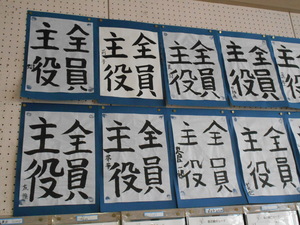 全員
主役
全員
主役
全員
主役
全員
主役
全員
主役
全員
主役
全員
主役
全員
主役
全員
主役